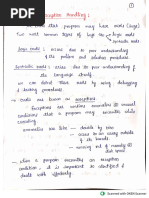 Exception Handling :
①
→ that program may have errors (bugs)
→ Two most common types of bugs are → logic errors
→ Syntactic errors
Logic errors : arises due to poor understanding
of the problem and solution procedure.
Syntactic errors : arises due to poor understanding of
the language itself.
→ we can detect these errors by using debugging
& testing procedures
→ Errors are known as exceptions
Exceptions are runtime anomalies or unusual
conditions that a program may encounter
while executing
anomalies are like — divide by zero
→ access to an array outside
of its bounds
→ running out of memory
→ when a program encounters an exception
condition, it is important that it is identified &
dealt with effectively.
Scanned with OKEN Scanner